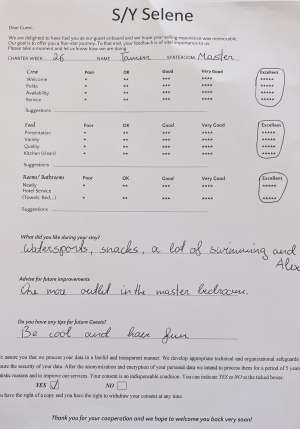 S/Y Selene
Dear Guest,
We are delighted to have had you as our guest onboard and we hope your sailing experience was memorable.
Our goal is to offer you a five-star journey. To that end, your feedback is of vital importance to us.
Please take a moment and let us know how we are doing.
CHARTER WEEK 26 NAME STATEROOM Master
Crew Poor OK Good Very Good Excellent
Welcome * ** *** **** *****
Polite * ** *** **** *****
Availability * ** *** **** *****
Service * ** *** **** *****
Suggestions
Food Poor OK Good Very Good Excellent
Presentation * ** *** **** *****
Variety * ** *** **** *****
Quality * ** *** **** *****
Kitchen (clean) * ** *** **** *****
Suggestions
Rooms / Bathrooms Poor OK Good Very Good Excellent
Neatly * ** *** **** *****
Hotel Service
(Towels, Bed,..) * ** *** **** *****
Suggestions
What did you like during your stay?
Watersports, snacks, a lot of swimming and
Alex
Advise for future improvements
One more outlet in the master bedroom.
Do you have any tips for future Guests?
Be cool and have fun
assure you that we process your data in a lawful and transparent manner. We develop appropriate technical and organisational safeguards
ure the security of your data. After the anonymisation and encryption of your personal data we intend to process them for a period of 5 years
istic reasons and to improve our services. Your consent is an indispensable condition. You can indicate YES or NO in the ticked boxes:
YES NO
have the right of a copy and you have the right to withdraw your consent at any time.
Thank you for your cooperation and we hope to welcome you back very soon!